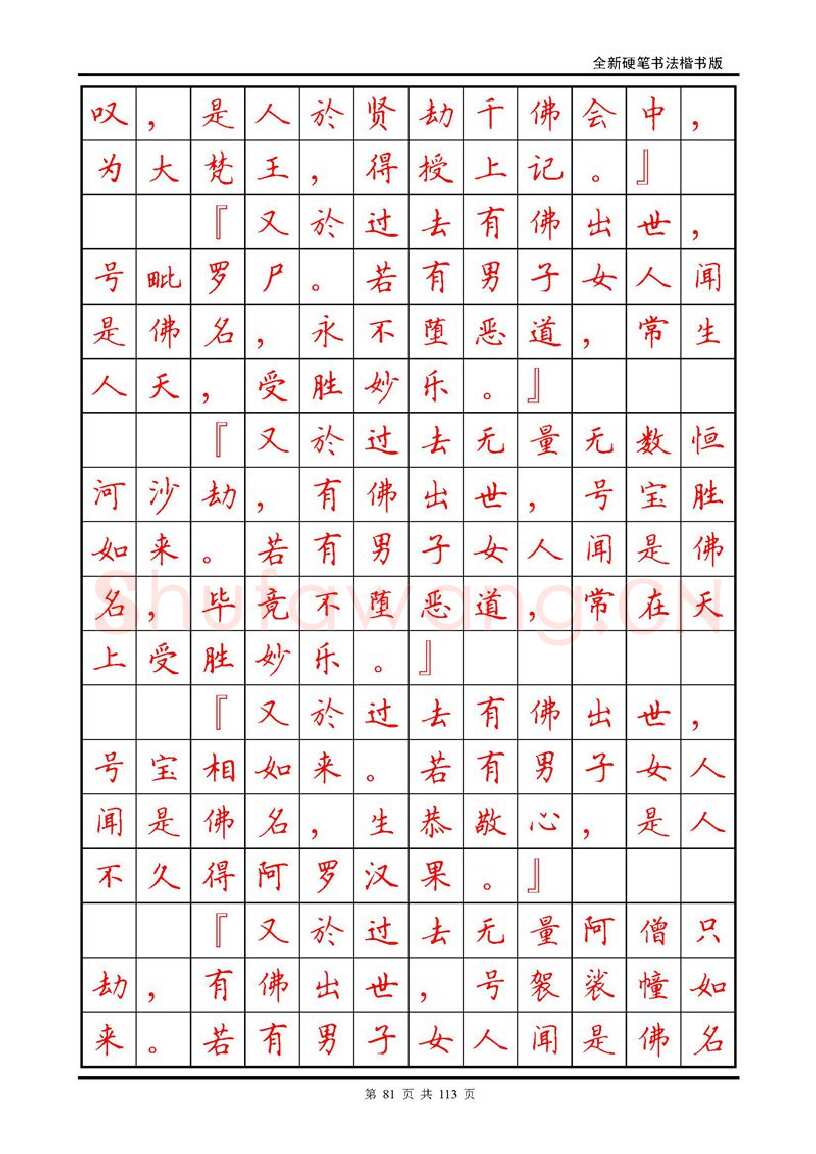 全新硬笔书法楷书版
叹，是人於贤劫千佛会中，
为大梵王，得授上记。』
『又於过去有佛出世，
号毗罗尸。若有男子女人闻
是佛名，永不堕恶道，常生
人天，受胜妙乐。』
『又於过去无量无数恒
河沙劫，有佛出世，号宝胜
如来。若有男子女人闻是佛
名，毕竟不堕恶道，常在天
上受胜妙乐。』
『又於过去有佛出世，
号宝相如来。若有男子女人
闻是佛名，生恭敬心，是人
不久得阿罗汉果。』
『又於过去无量阿僧只
劫，有佛出世，号袈裟幢如
来。若有男子女人闻是佛名
Shufawang.CN
第 81 页 共 113 页